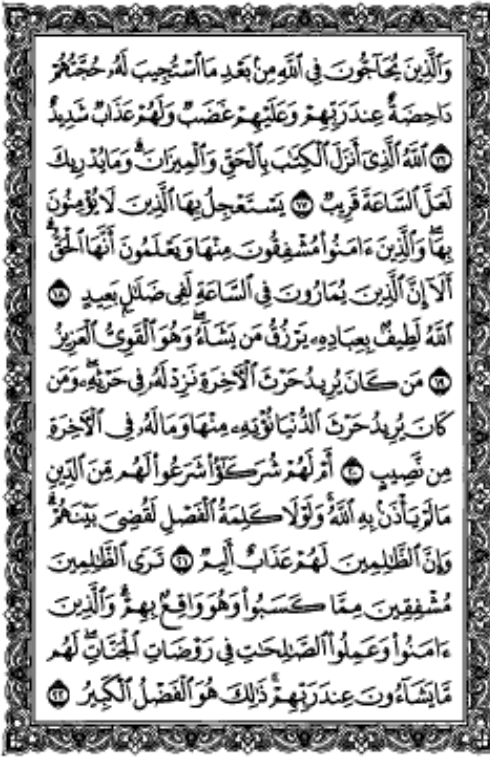 وَٱلَّذِينَ يُحَآجُّونَ فِي ٱللَّهِ مِنۢ بَعْدِ مَا ٱسْتُجِيبَ لَهُۥ حُجَّتُهُمْ
دَاحِضَةٌ عِندَ رَبِّهِمْ وَعَلَيْهِمْ غَضَبٌ وَلَهُمْ عَذَابٌ شَدِيدٌ
١٦ ٱللَّهُ ٱلَّذِيٓ أَنزَلَ ٱلْكِتَٰبَ بِٱلْحَقِّ وَٱلْمِيزَانَۗ وَمَا يُدْرِيكَ
لَعَلَّ ٱلسَّاعَةَ قَرِيبٌ ١٧ يَسْتَعْجِلُ بِهَا ٱلَّذِينَ لَا يُؤْمِنُونَ
بِهَاۖ وَٱلَّذِينَ ءَامَنُوا۟ مُشْفِقُونَ مِنْهَا وَيَعْلَمُونَ أَنَّهَا ٱلْحَقُّۗ
أَلَآ إِنَّ ٱلَّذِينَ يُمَارُونَ فِي ٱلسَّاعَةِ لَفِي ضَلَٰلٍۭ بَعِيدٍ ١٨
ٱللَّهُ لَطِيفٌۢ بِعِبَادِهِۦ يَرْزُقُ مَن يَشَآءُۖ وَهُوَ ٱلْقَوِيُّ ٱلْعَزِيزُ
١٩ مَن كَانَ يُرِيدُ حَرْثَ ٱلْءَاخِرَةِ نَزِدْ لَهُۥ فِي حَرْثِهِۦۖ وَمَن
كَانَ يُرِيدُ حَرْثَ ٱلدُّنْيَا نُؤْتِهِۦ مِنْهَا وَمَا لَهُۥ فِي ٱلْءَاخِرَةِ
مِن نَّصِيبٍ ٢٠ أَمْ لَهُمْ شُرَكَٰٓؤُا۟ شَرَعُوا۟ لَهُم مِّنَ ٱلدِّينِ
مَا لَمْ يَأْذَنۢ بِهِ ٱللَّهُۚ وَلَوْلَا كَلِمَةُ ٱلْفَصْلِ لَقُضِيَ بَيْنَهُمْۗ
وَإِنَّ ٱلظَّٰلِمِينَ لَهُمْ عَذَابٌ أَلِيمٌ ٢١ تَرَى ٱلظَّٰلِمِينَ
مُشْفِقِينَ مِمَّا كَسَبُوا۟ وَهُوَ وَاقِعٌۢ بِهِمْۗ وَٱلَّذِينَ
ءَامَنُوا۟ وَعَمِلُوا۟ ٱلصَّٰلِحَٰتِ فِي رَوْضَاتِ ٱلْجَنَّاتِۖ لَهُم
مَّا يَشَآءُونَ عِندَ رَبِّهِمْۚ ذَٰلِكَ هُوَ ٱلْفَضْلُ ٱلْكَبِيرُ ٢٢